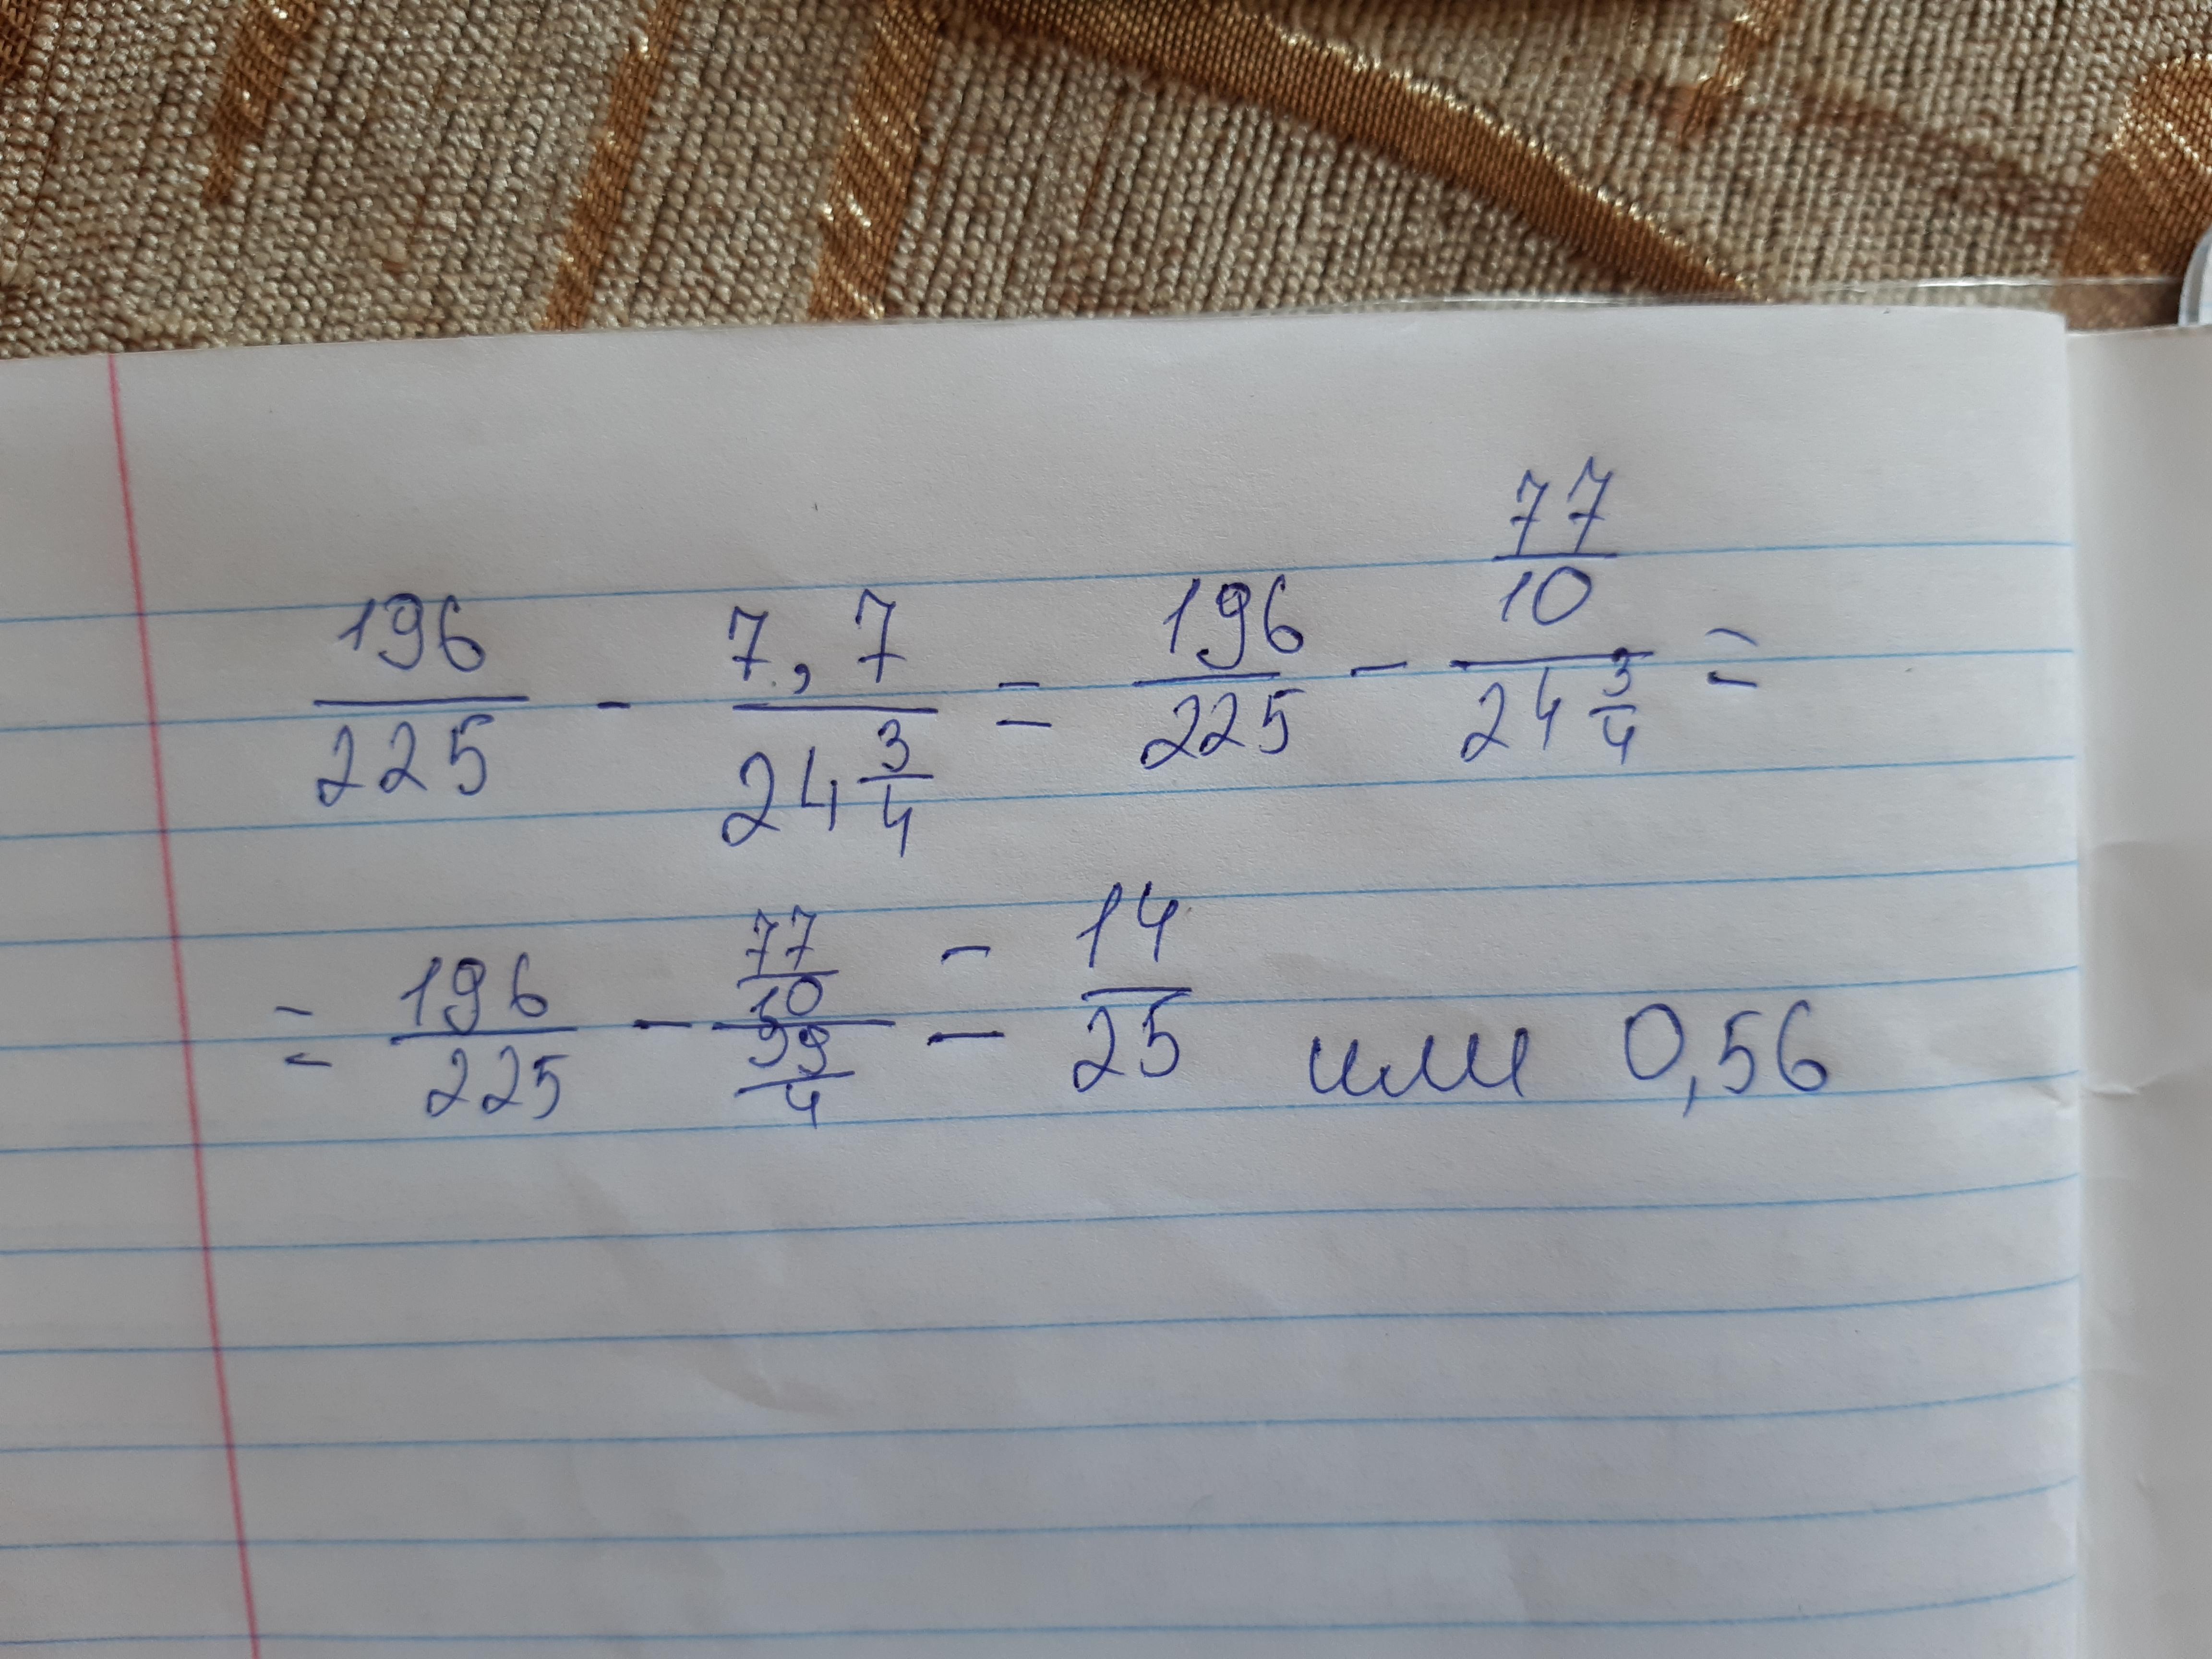 196/225 - 7,7/24 3/4 = 196/225 - 77/10/24 3/4 =
= 196/225 - 77/10/99/4 = 14/25 или 0,56